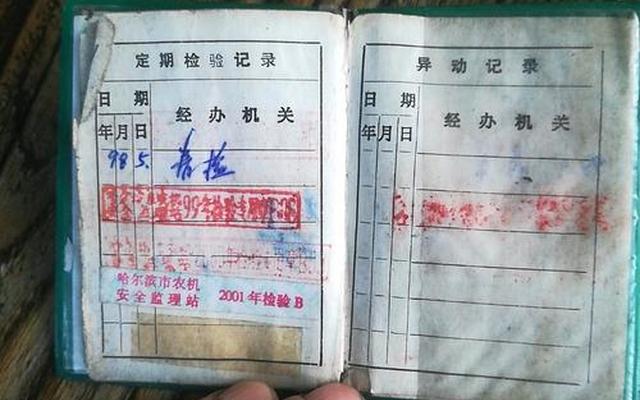 定期检验记录
日期
经办机关
年月日
98 5. 普检
99年检验专用
哈尔滨市农机
安全监理站 2001年检验B
异动记录
日期
经办机关
年月日